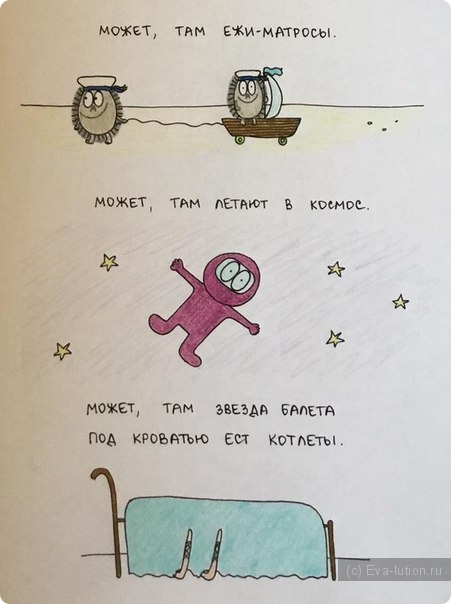 МОЖЕТ, ТАМ ЕЖИ-МАТРОСЫ.
МОЖЕТ, ТАМ ЛЕТАЮТ В КОСМОС.
МОЖЕТ, ТАМ ЗВЕЗДА БАЛЕТА
ПОД КРОВАТЬЮ ЕСТ КОТЛЕТЫ.
(c) Eva-lution.ru